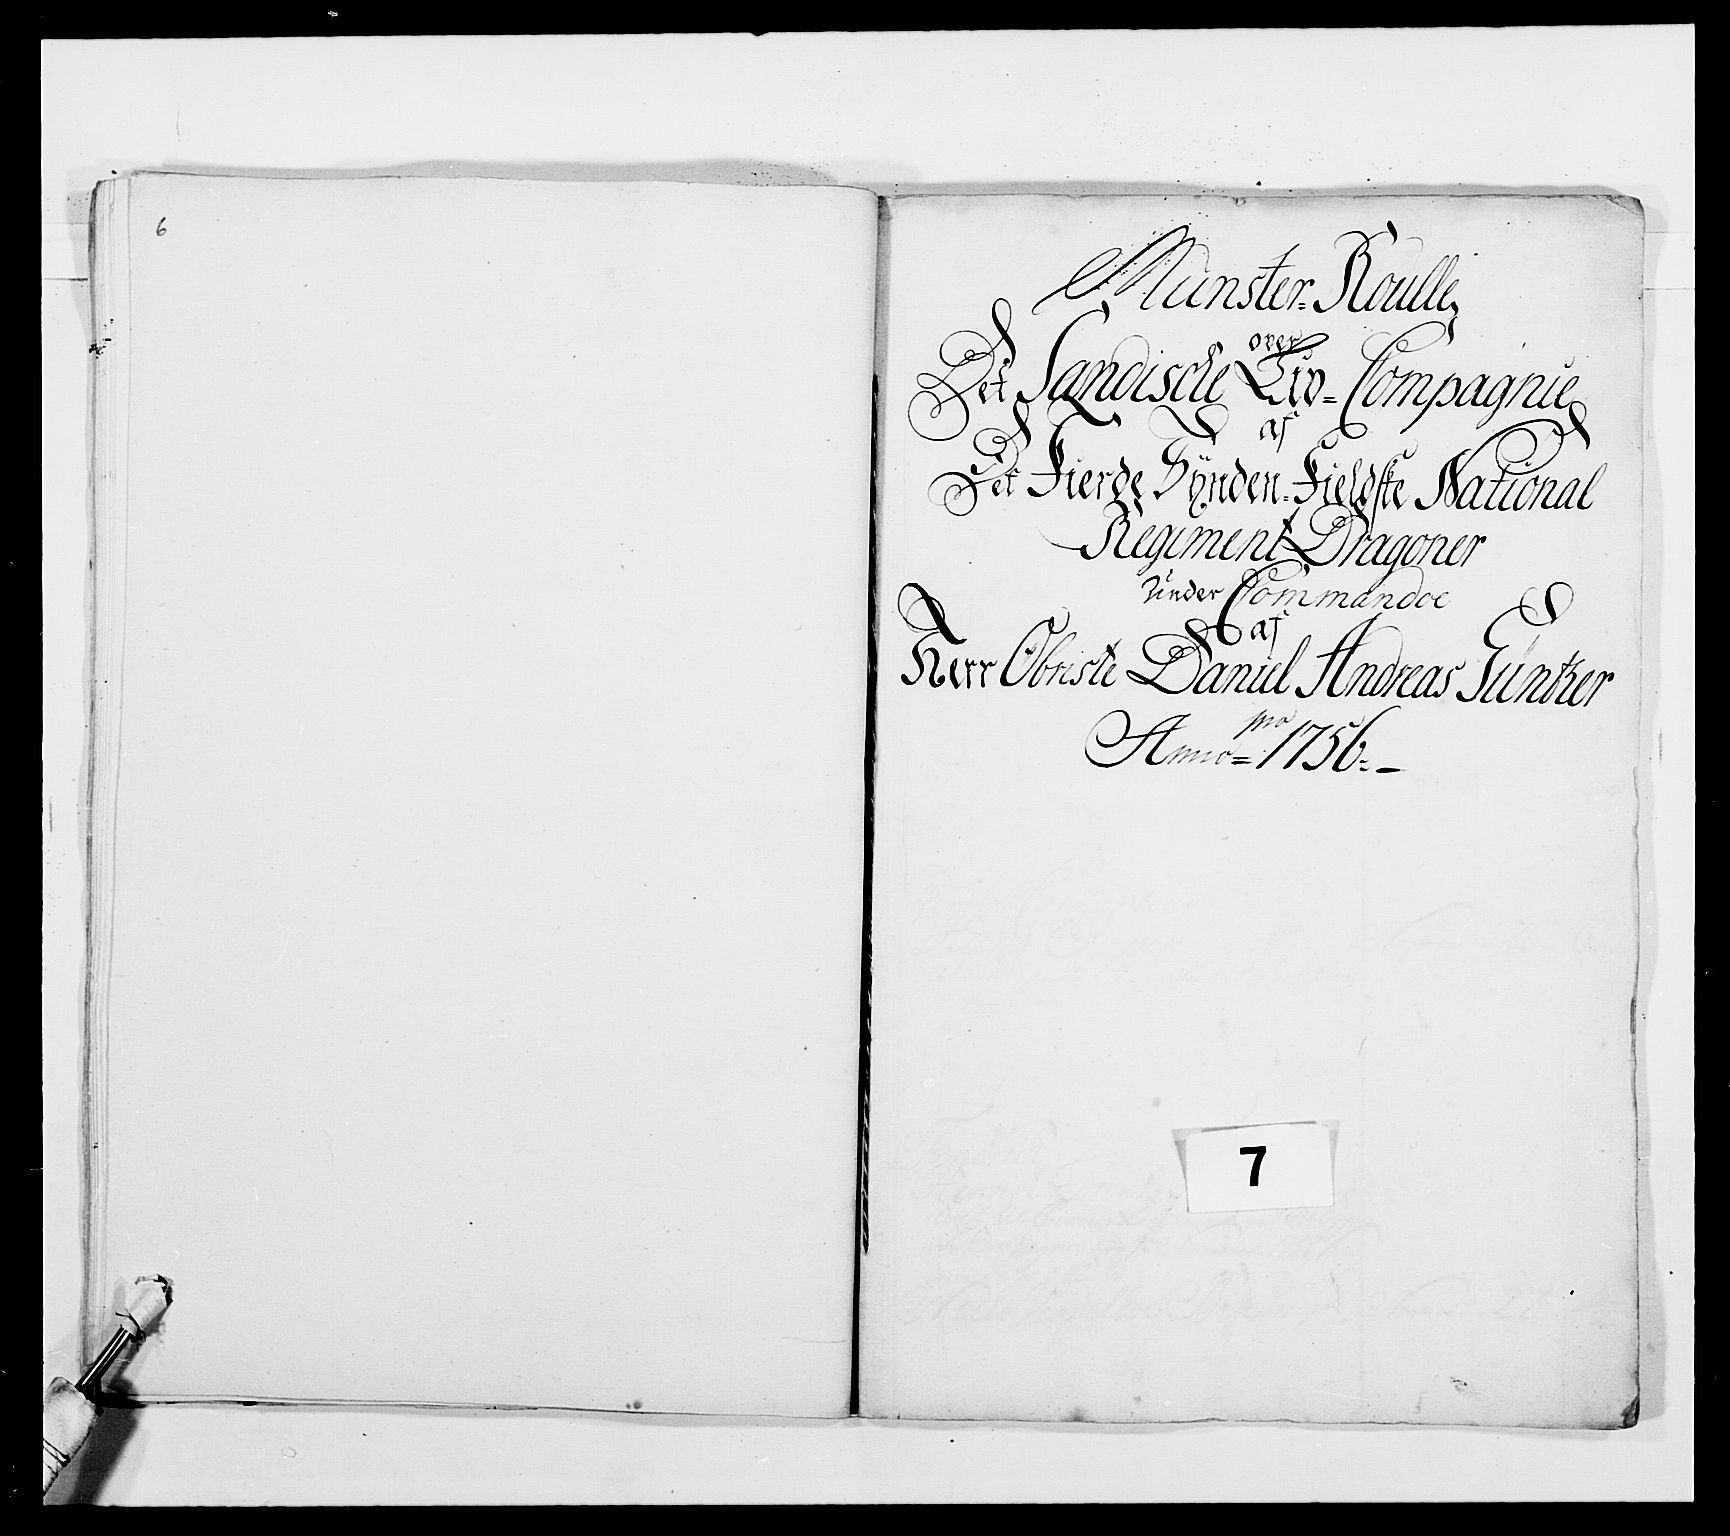 6
Munster-Roulle,
over
Det Sandische Liv-Compagnie
af
Det Fierde Synden-Fieldske National
Regiment Dragoner
Under Commandoe
af
Herr Obriste Daniel Andreas Günther
pro
Anno = 1756: -
7